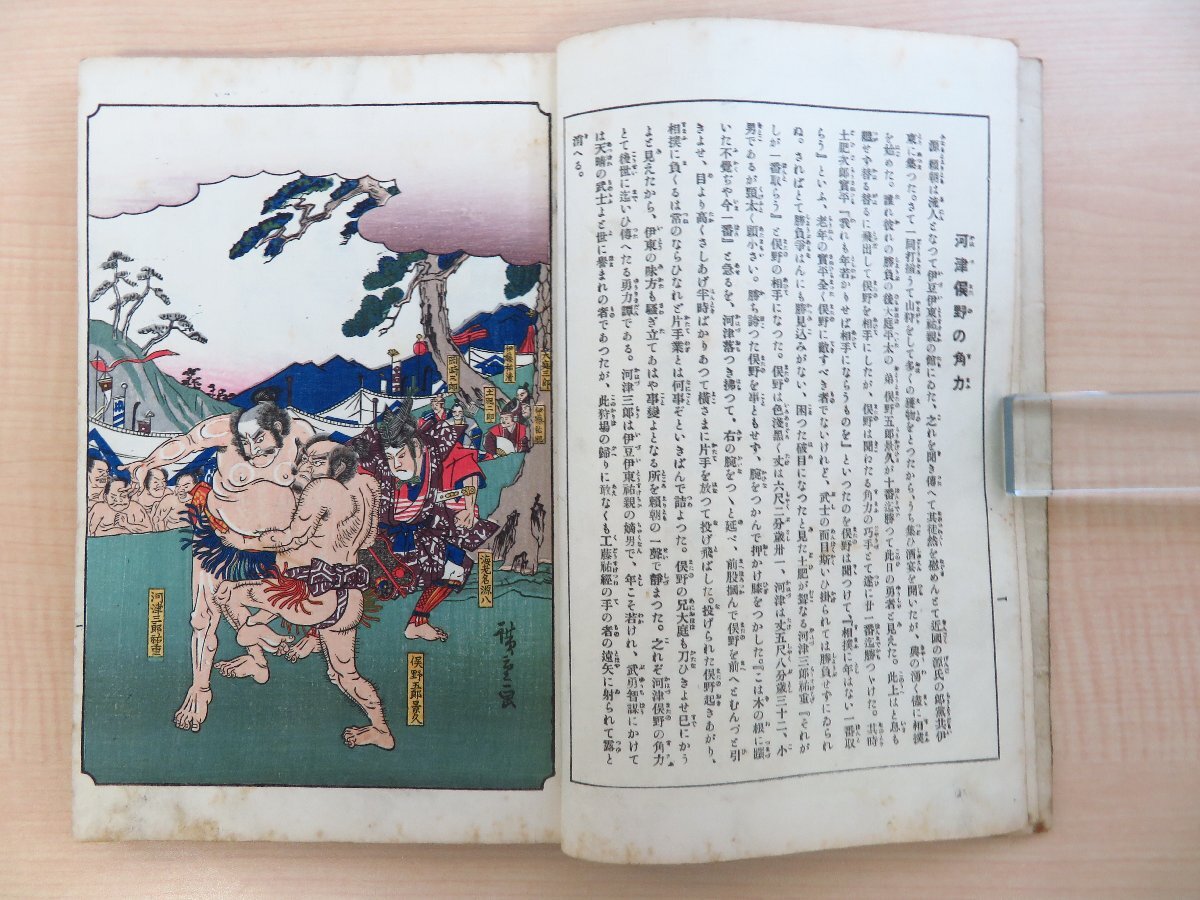 河津俣野の角力
源頼朝は流人となつて伊豆伊東祐親の館にゐた、之れを聞き傳へて其徒然を慰めんとて近國の源氏の郎黨共伊
東に集つた。さて一同打揃うて山狩をして多くの獲物をとつたから、うち集ひ酒宴を開いたが、興の湧く儘に相撲
を始めた。誰れ彼れの勝負の後大庭平太の弟俣野五郎景久が十番迄勝つて此日の勇者と見えた。此上はと息も
繼せず替る替るに飛出して俣野を相手にしたが、俣野は聞えたる角力の巧手とて遂に廿一番迄勝つちやけた。其時
土肥次郎實平『我れも年若かりせば相手にならうものを』といつたのを俣野は聞つけて、『相撲に年はない一番取
らう』といふ、老年の實平全く俣野に敵すべき者でないけれど、武士の面目斯いひ掛られては勝負せずにゐられ
ぬ。さればとて勝負爭はんにも勝見込みがない、困つた破目になつたと見た土肥が聟なる河津三郎祐重『それが
しが一番取らう』と俣野の相手になつた。俣野は色淺黑く丈は六尺二分歲卅一、河津は丈五尺八分歲三十二、小
男であるが頸太く頭小さい。勝ち誇つた俣野を事ともせず、腕をつかんで押かけ膝をつかした。『こは木の根に躓
いた不覺ぢや今一番』と急るを、河津落つき拂つて、右の腕をつくと延べ、前股摑んで俣野を前へとむんづと引
きよせ、目より高くさしあげ半時ばかりあつて橫さまに片手を放つて投げ飛ばした。投げられた俣野起きあがり、
相撲に負くるは常のならひなれど片手業とは何事ぞといきばんで詰よつた。俣野の兄大庭も刀ひきよせ巳にかう
よと見えたから、伊東の味方も騷ぎ立てあはや事變よとなる所を賴朝の一聲で靜まつた。之れぞ河津俣野の角力
とて後世に迄いひ傳へたる勇力譚である。河津三郎は伊豆伊東祐親の嫡男で、年こそ若けれ、武勇智謀にかけて
は天晴の武士よと世に譽まれの者であつたが、此狩場の歸りに敢なくも工藤祐經の手の者の遠矢に射られて露と
消へる。
一
岡崎四郎
海老名源八
俣野五郎景久
河津三郎祐重
廣重画